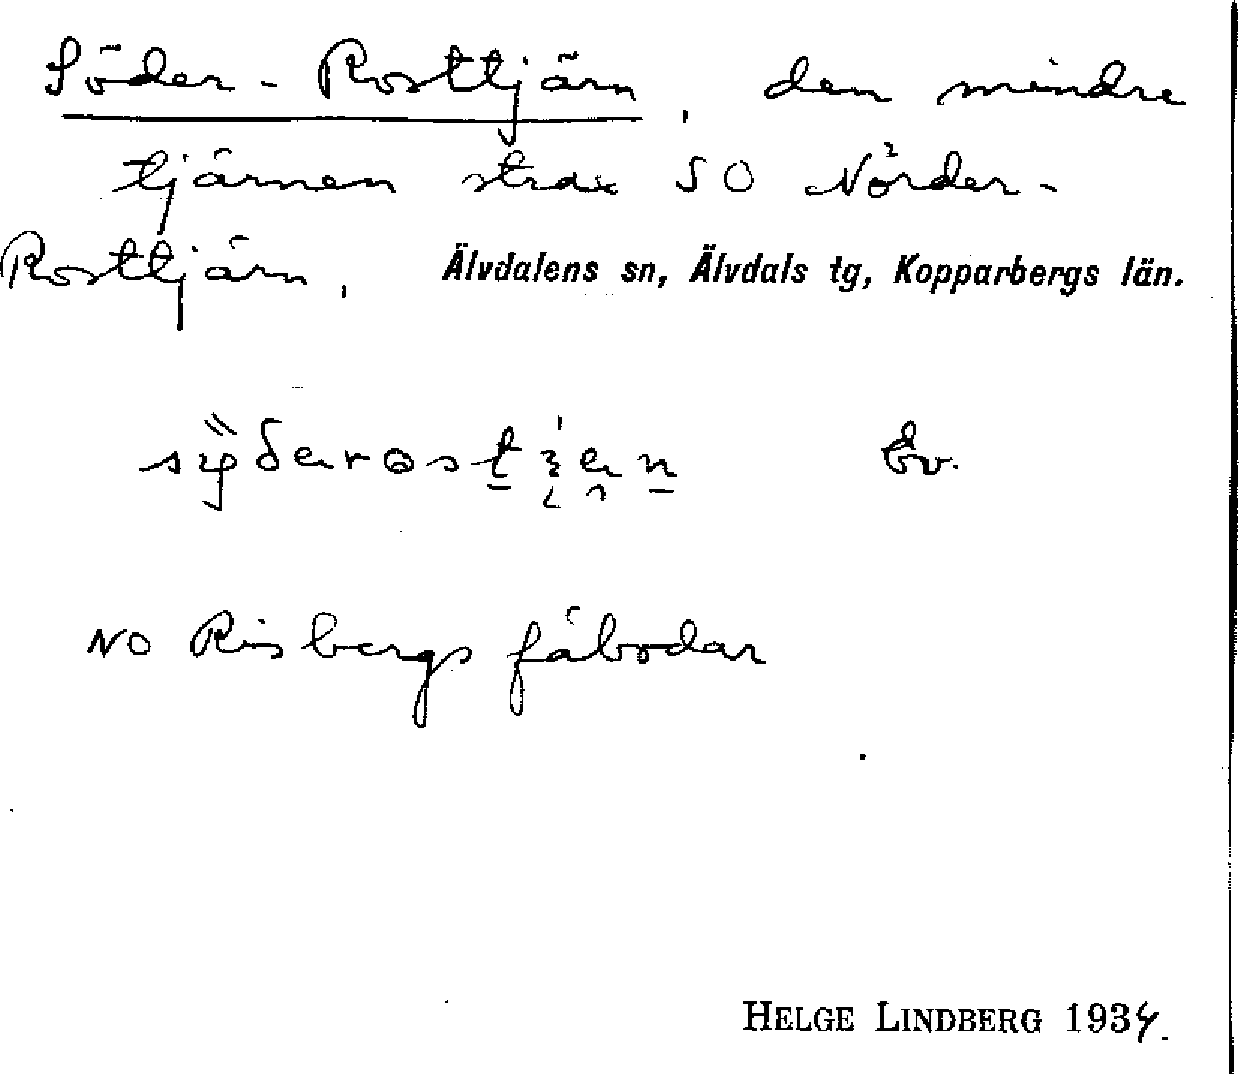 Söder-Rosttjärn, den mindre
tjärnen strax SO Nörder-
Rosttjärn, Älvdalens sn, Älvdals tg, Kopparbergs län.
bv.
NO Risbergs fäbodar
HELGE LINDBERG 1934